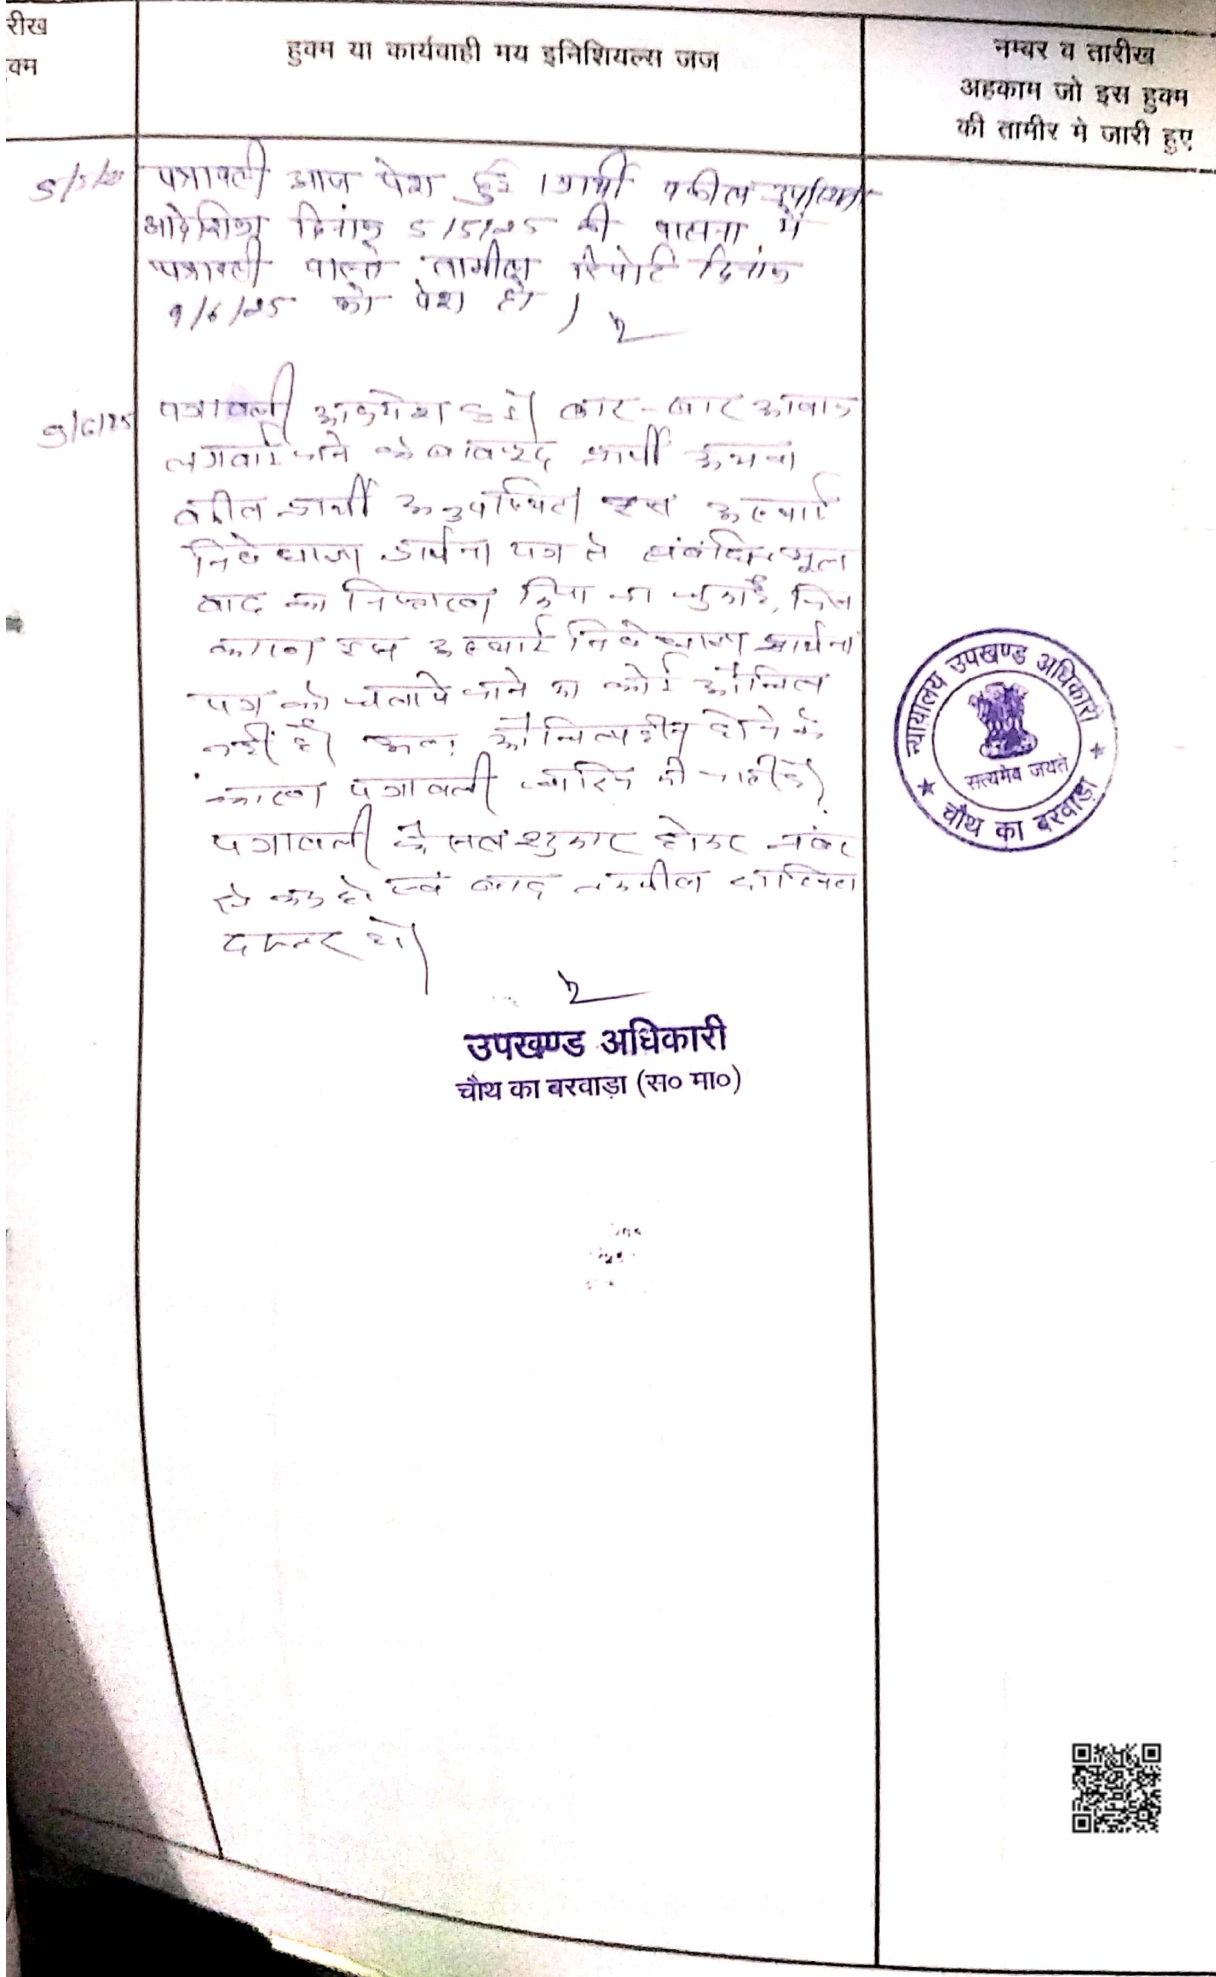 रीख
क्म
हुक्म या कार्यवाही मय इनिशियल्स जज
नम्बर व तारीख
अहकाम जो इस हुक्म
की तामीर मे जारी हुए
5/5/25 पत्रावली आज पेश हुई । प्रार्थी वकील उपस्थित
आदेशिका दिनांक 5/5/25 की पालना में
पत्रावली वास्ते तामील रिपोर्ट दिनांक
9/6/25 को पेश हो ।
9/6/25 पत्रावली आज पेश हुई। बार-बार आवाज
लगवाये जाने के बावजूद प्रार्थी अथवा
वकील प्रार्थी अनुपस्थित। इस अस्थाई
निषेधाज्ञा प्रार्थना पत्र से संबंधित मूल
वाद का निस्तारण किया जा चुका है, जिस
कारण इस अस्थाई निषेधाज्ञा प्रार्थना
पत्र को चलाये जाने का कोई औचित्य
नहीं है। अतः औचित्यहीन होने के
कारण पत्रावली खारिज की जाती है।
पत्रावली फैसल शुमार होकर नंबर
से कम हो एवं बाद तकमील दाखिल
दफ्तर हो।
उपखण्ड अधिकारी
चौथ का बरवाड़ा (स० मा०)
न्यायालय उपखण्ड अधिकारी
सत्यमेव जयते
चौथ का बरवाड़ा